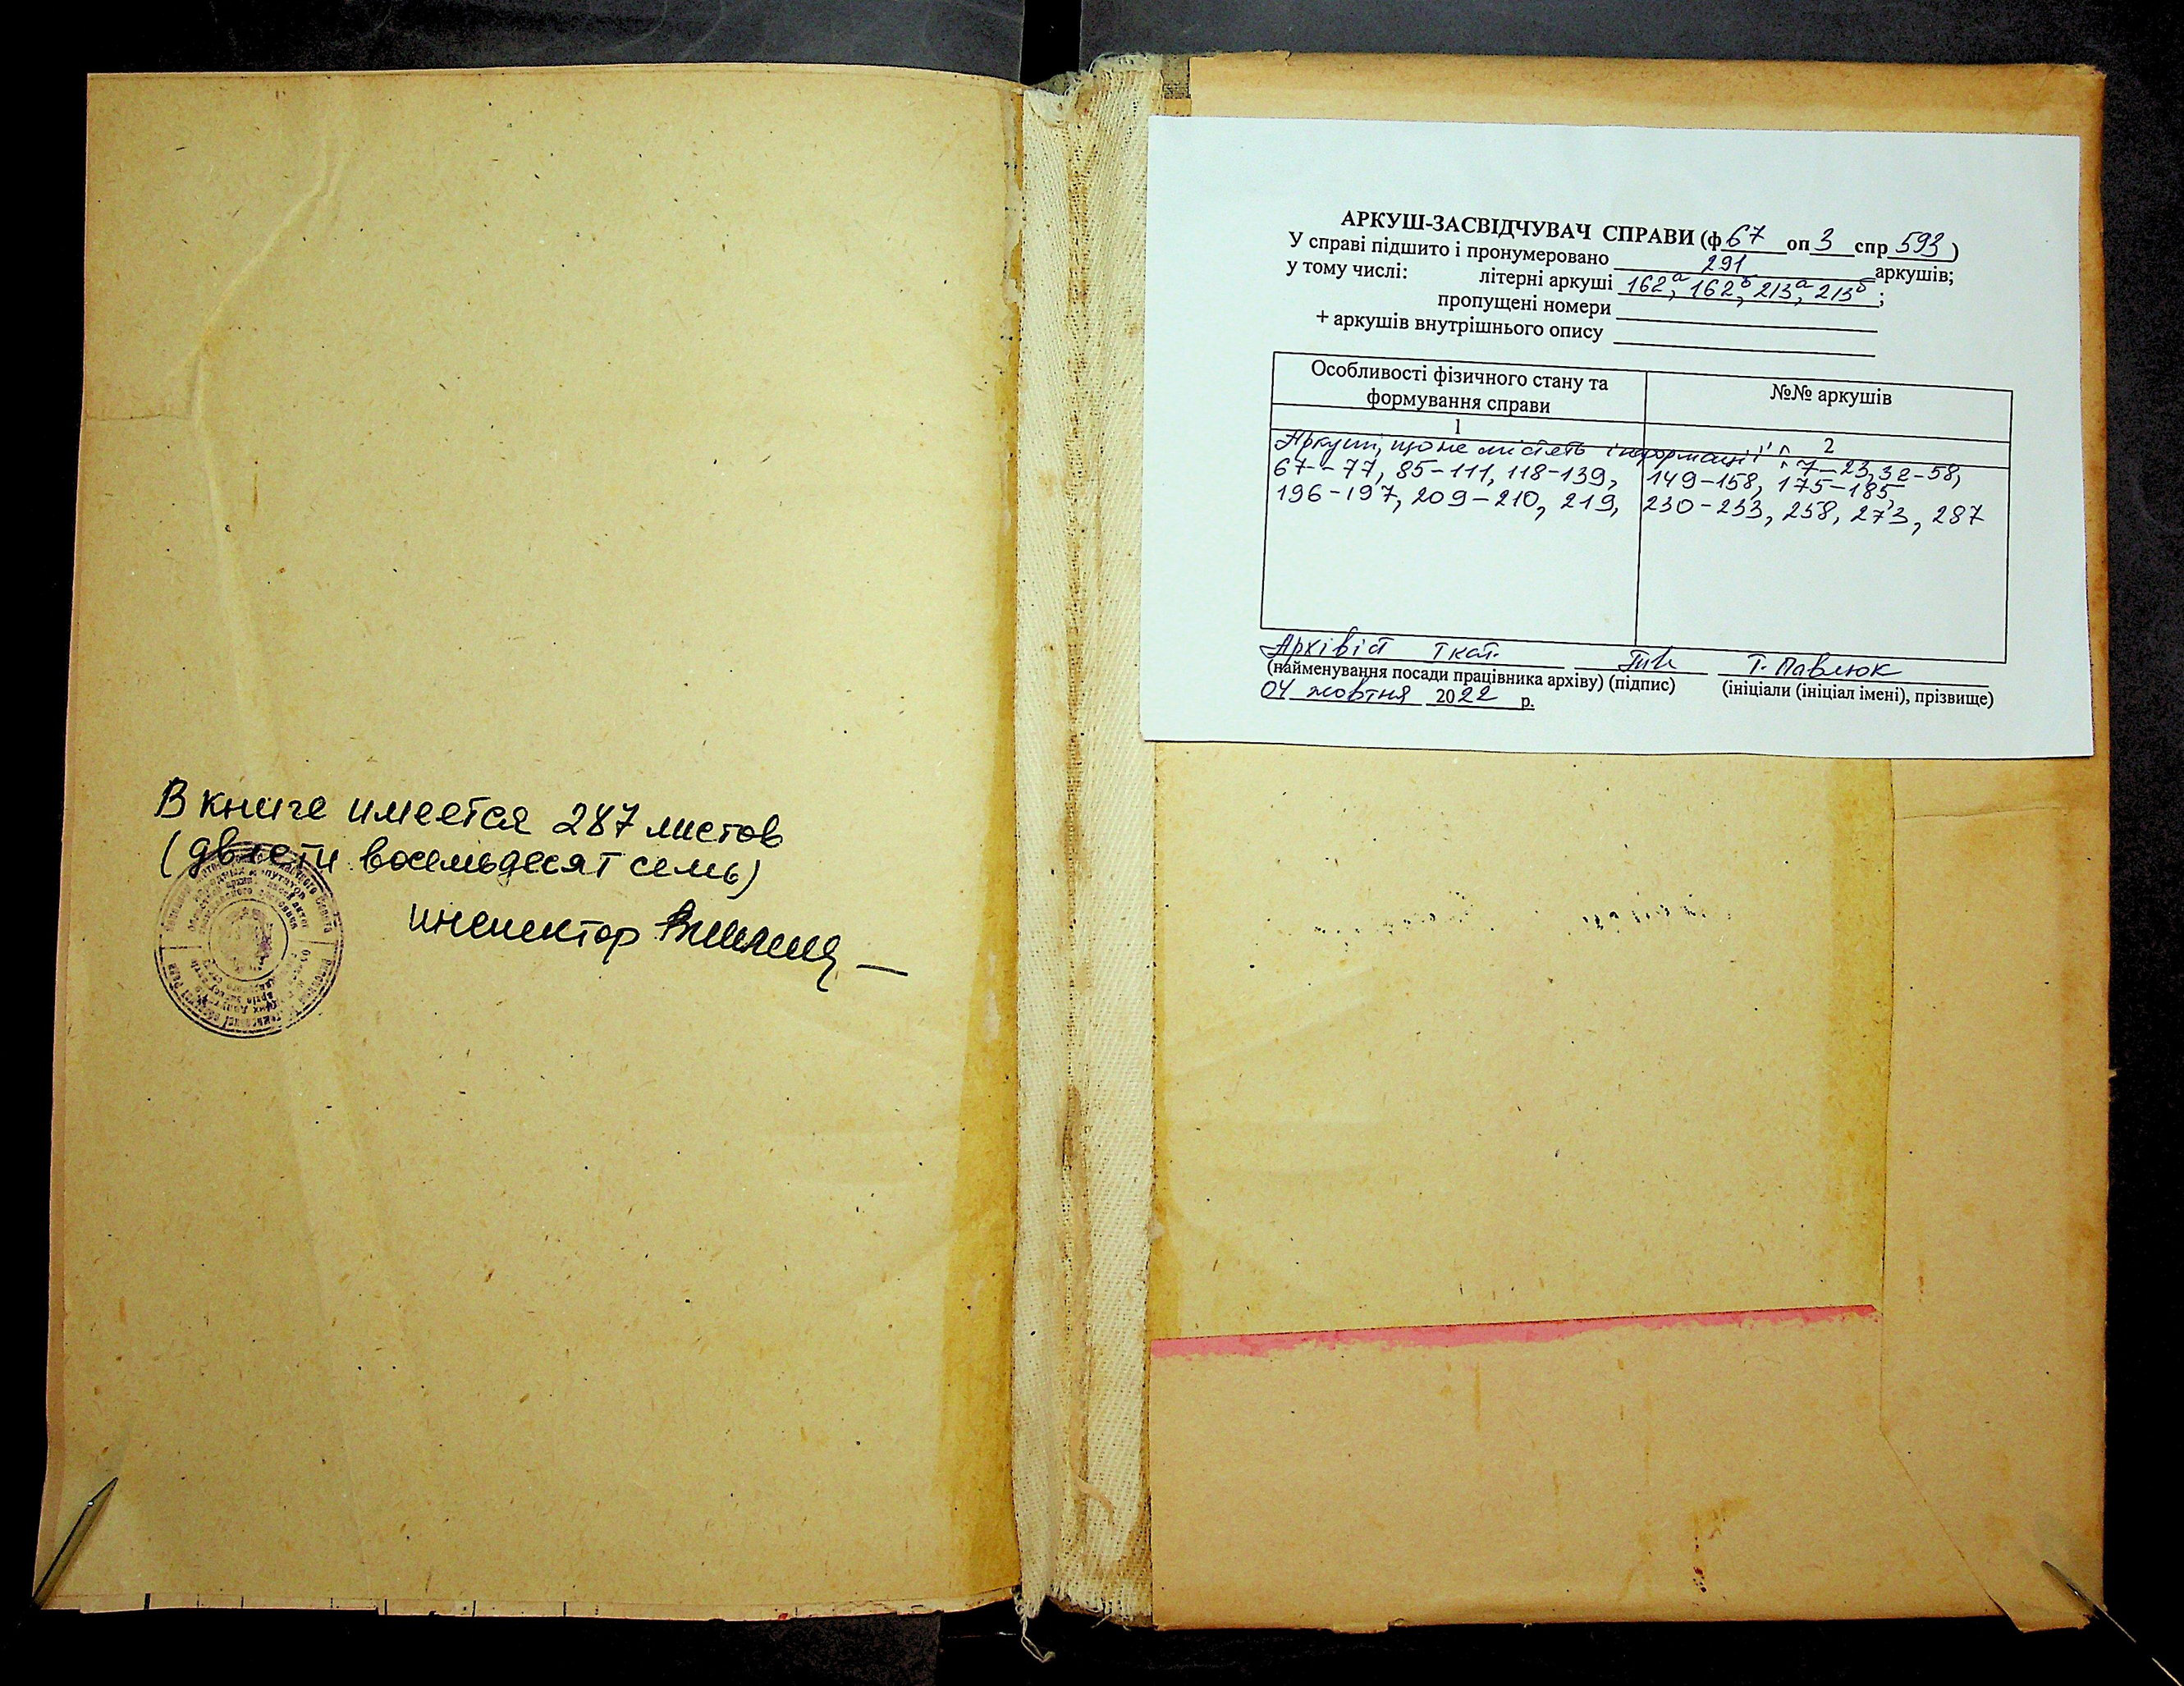 В книге имеется 287 листов
(двести восемьдесят семь)
инспектор
АРКУШ-ЗАСВІДЧУВАЧ СПРАВИ (ф 67 оп 3 спр 593)
У справі підшито і пронумеровано 291 аркушів;
у тому числі: літерні аркуші 162а, 162б, 213а, 213б;
пропущені номери
+ аркушів внутрішнього опису
Особливості фізичного стану та
формування справи
№№ аркушів
1
2
Аркуші, що не містять інформації: 7-23, 32-58,
67-77, 85-111, 118-139, 149-158, 175-185,
196-197, 209-210, 219, 230-233, 258, 273, 287
Архівіст І кат. Т. Павлюк
(найменування посади працівника архіву) (підпис) (ініціали (ініціал імені), прізвище)
04 жовтня 2022 р.